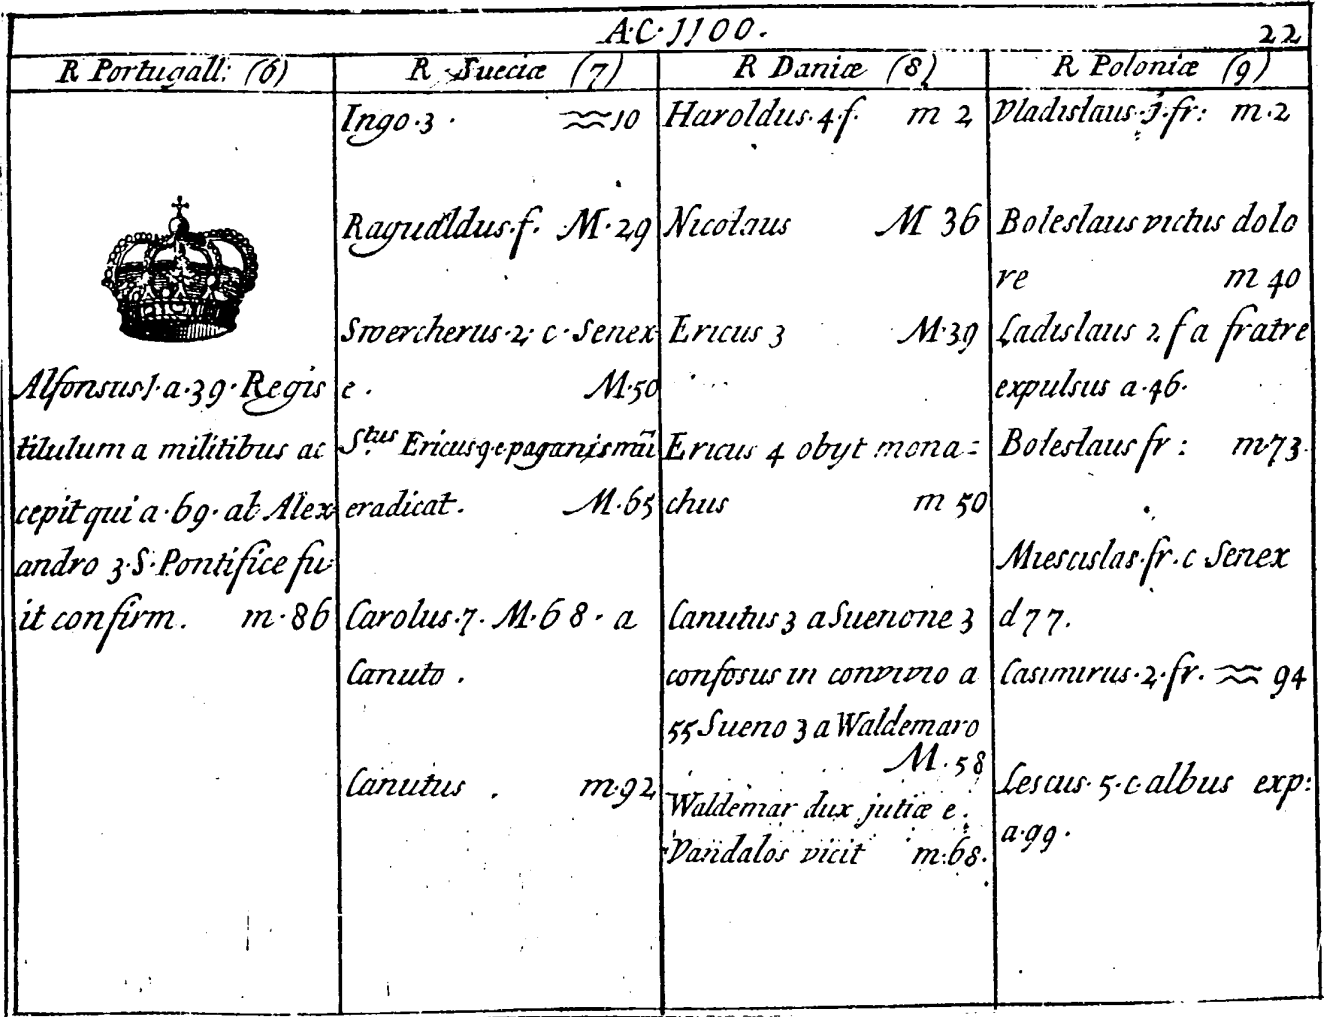 A·C·1100.
22
R Portugall: (6)
Alfonsus·1·a·39·Regis
titulum a militibus ac
cepit qui a·69·ab Alex
andro 3·S·Pontifice fu
it confirm. m·86
R Sueciæ (7)
Ingo·3· ≈10
Ragualdus·f. M·29
Swercherus·2; c·Senex
e. M·50
S.tus Ericus q·e paganismū
eradicat. M·65
Carolus·7. M·68·a
Canuto.
Canutus. m·92
R Daniæ (8)
Haroldus·4·f. m 2
Nicolaus M 36
Ericus 3 M·39
Ericus 4 obyt mona=
chus m 50
Canutus 3 a Suenone 3
confosus in convivio a
55 Sueno 3 a Waldemaro
M·58
Waldemar dux jutiæ e.
Vandalos vicit m·68.
R Poloniæ (9)
Vladislaus·1·fr: m·2
Boleslaus victus dolo
re m 40
Ladislaus 2 f a fratre
expulsus a·46·
Boleslaus fr: m·73.
Miescislas·fr·c Senex
d 77.
Casimirus·2·fr. ≈ 94
Lescus·5·c·albus exp:
a·99.